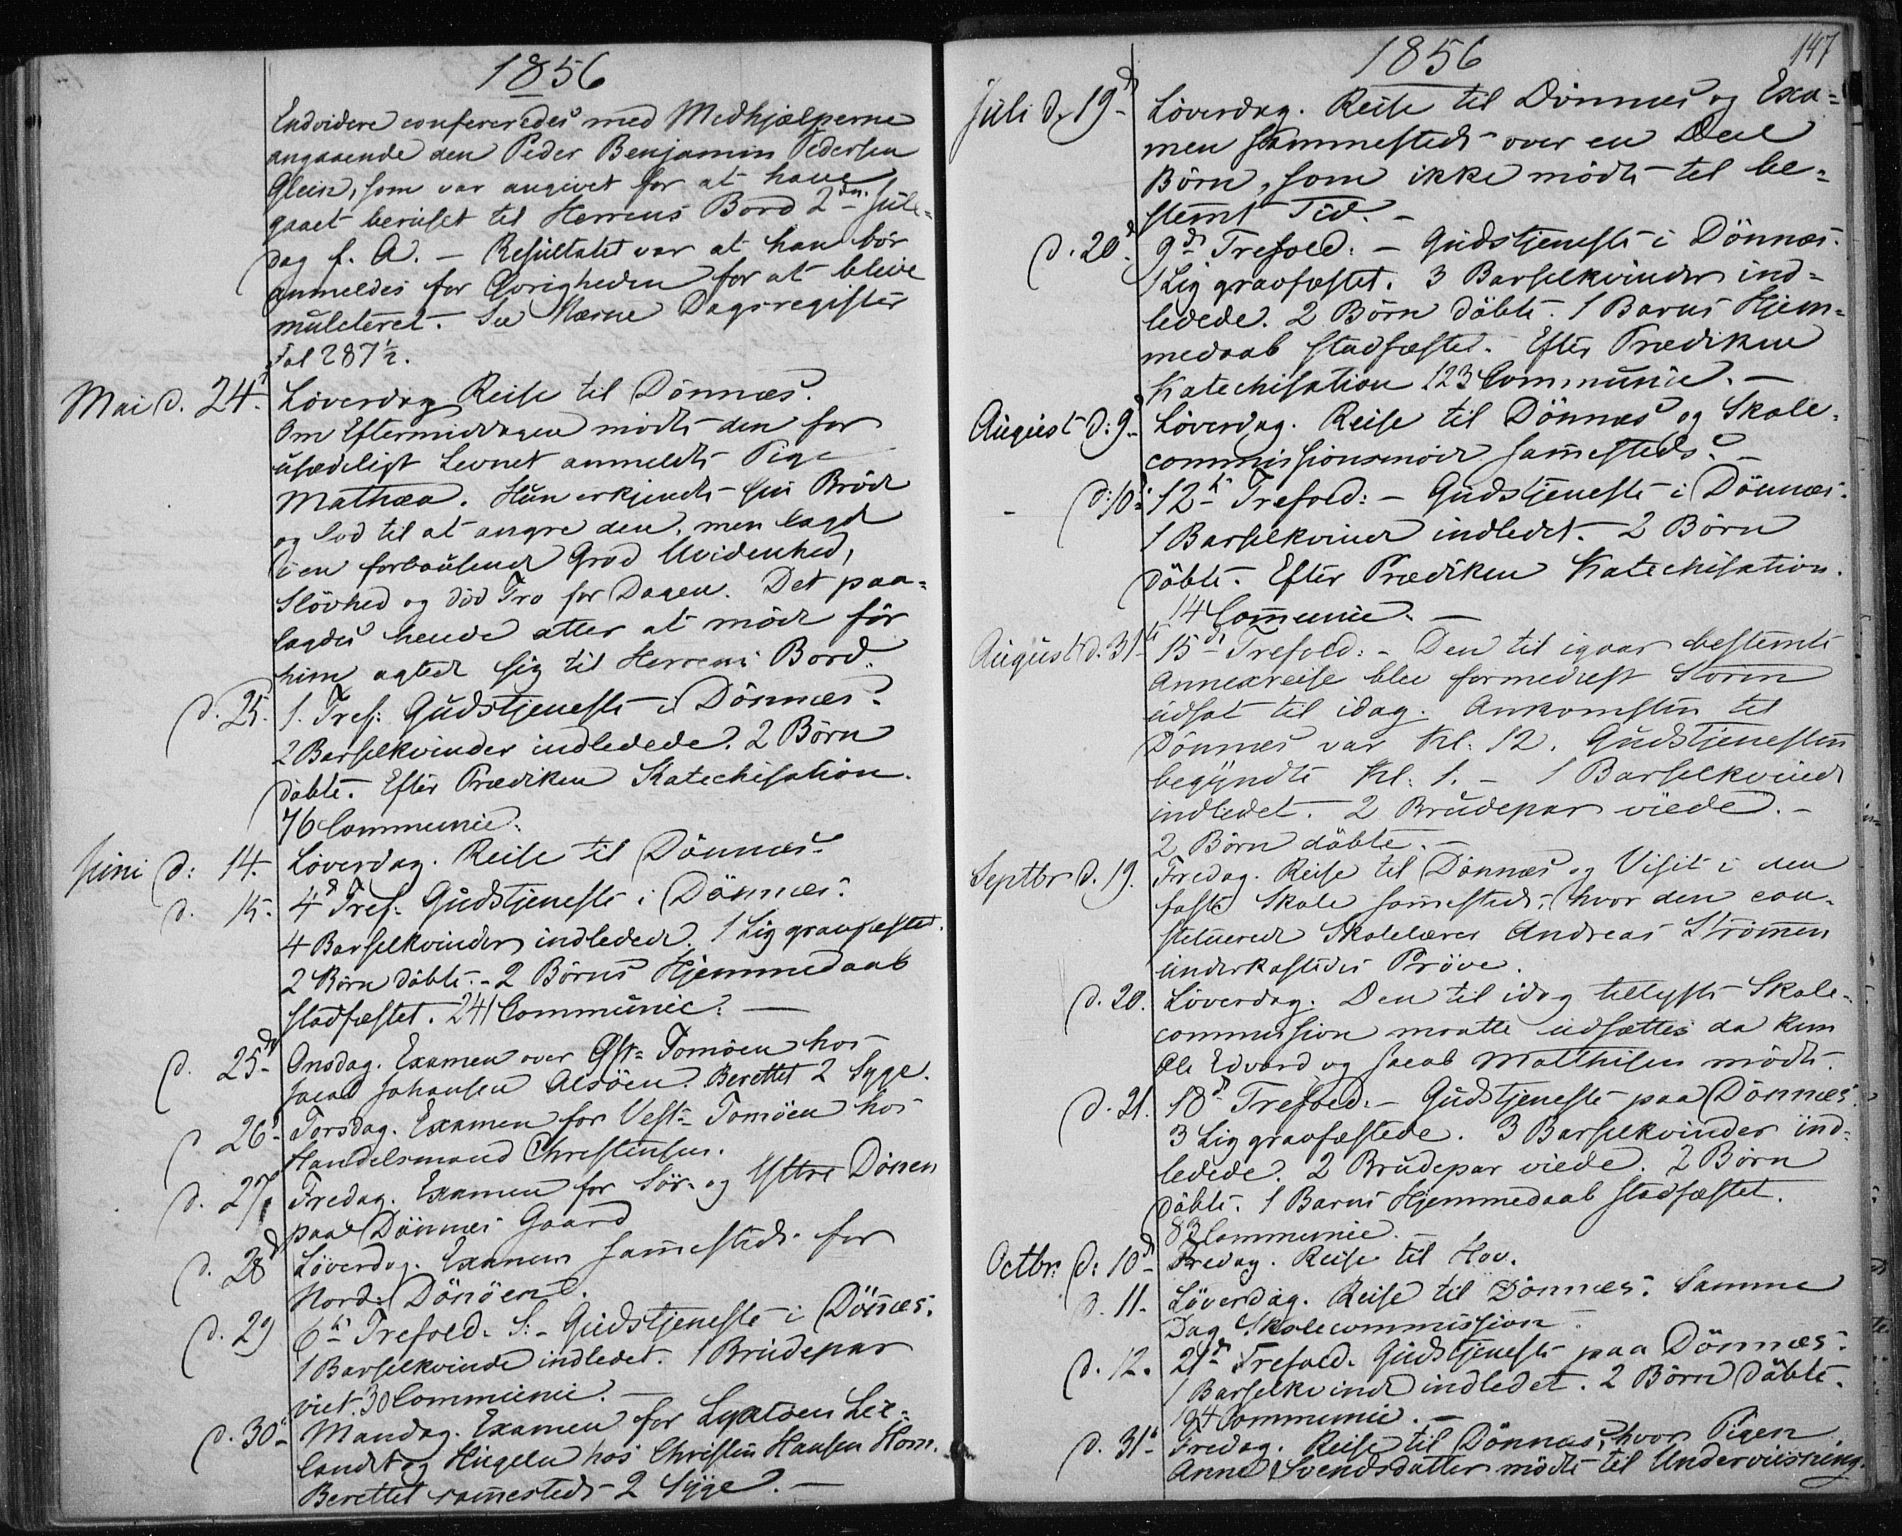 1856
Endvidere confereredes med Medhjælperne
angaaende den Peder Benjamin Pedersen
Glein, som var angivet for at have
gaaet beruset til Herrens Bord 2den Jule-
dag f. A. – Resultatet var at han bör
anmeldes for Øvrigheden for at blive
mulcteret. – See Nærne Dagsregister
Fol 287½.
Mai d. 24. Löverdag Reise til Dönnæs.
Om Eftermiddagen mödte den for
usædeligt Levnet anmeldte Pige
Mathæa. Hun erkjendte sin Bröde
og lod til at angre den, men lagde
i en forbausende Grad Uvidenhed,
Slövhed og död Tro for Dagen. Det paa-
lagdes hende atter at möde för
hun agtede sig til Herrens Bord.
d. 25. 1. Tref: Gudstjeneste i Dönnæs.
2 Barselkvinder indledede. 2 Börn
döbte. Efter Prædiken Katechisation.
76 Communic:
Juni d: 14. Löverdag. Reise til Dönnæs.
d. 15. 4d Tref: Gudstjeneste i Dönnæs.
4 Barselkvinder indledede. 1 Lig gravfæstet.
2 Börn döbte. – 2 Börns Hjemmedaab
stadfæstet. 241 Communic: —
d. 25d Onsdag. Examen over Øst= Tomöen hos
Jacob Johansen Alsöen. Berettet 2 Syge.
d. 26. Torsdag. Examen for Vest= Tomöen hos
Handelsmand Christensen.
d. 27. Fredag. Examen for Sör- og Yttre Dönen
paa Dönnæs Gaard
d. 28d Löverdag. Examen sammesteds for
Nord: Dönöen.
d. 29 6te Trefold. S: – Gudstjeneste i Dönnæs.
1 Barselkvinde indledet. 1 Brudepar
viet. 30 Communic. —
d. 30. Mandag. Examen for
landet og Hugeln hos Christen Hansen Hom.
Berettet sammesteds 2 Syge. —
1856
147
Juli d. 19d Löverdag. Reise til Dönnæs og Exa=
men sammesteds over en Deel
Börn, som ikke mödte til be=
stemt Tid. –
d. 20d 9de Trefold: – Gudstjeneste i Dönnæs.
1 Lig gravfæstet. 3 Barselkvinder ind=
ledede. 2 Börn döbte. 1 Barns Hjem=
medaab stadfæstet. Efter Prædiken
Katechisation 123 Communic. —
August d: 9. Löverdag. Reise til Dönnæs og Skole-
commissionsmöde sammesteds. –
d: 10. 12te Trefold: – Gudstjeneste i Dönnæs.
1 Barselkvinde indledet. 2 Börn
döbte. Efter Prædiken Katechisation.
14 Communic. —
August d. 31te 15de Trefold: – Den til igaar bestemte
Annexreise blev formedelst Storm
udsat til idag. Ankomsten til
Dönnæs var Kl: 12. Gudstjenesten
begyndte Kl: 1. – 1 Barselkvinde
indledet. 2 Brudepar viede. –
2 Börn döbte. –
Septbr d. 19. Fredag. Reise til Dönnæs og Visit i den
faste Skole sammesteds, hvor den con-
stituerede Skolelærer Andreas Strömen
underkastedes Pröve.
d. 20. Löverdag. Den til idag tillyste Skole-
commission maatte udsættes da kun
Ole Edvard og Jacob Matthisen mödte.
d. 21. 18de Trefold. – Gudstjeneste paa Dönnæs.
3 Lig gravfæstede. 3 Barselkvinder ind-
ledede. 2 Brudepar viede. 2 Börn
döbte. 1 Barns Hjemmedaab stadfæstet.
83 Communic. —
Octbr: d: 10d Fredag. Reise til Hov.
d. 11. Löverdag. Reise til Dönnæs. Samme
Dag Skolecommission.
d. 12. 21de Trefold. Gudstjeneste paa Dönnæs.
1 Barselkvinde indledet. 2 Börn döbte.
194 Communic. —
d. 31. Fredag. Reise til Dönnæs, hvor Pigen
Anne Svendsdatter mödte til Underviisning.